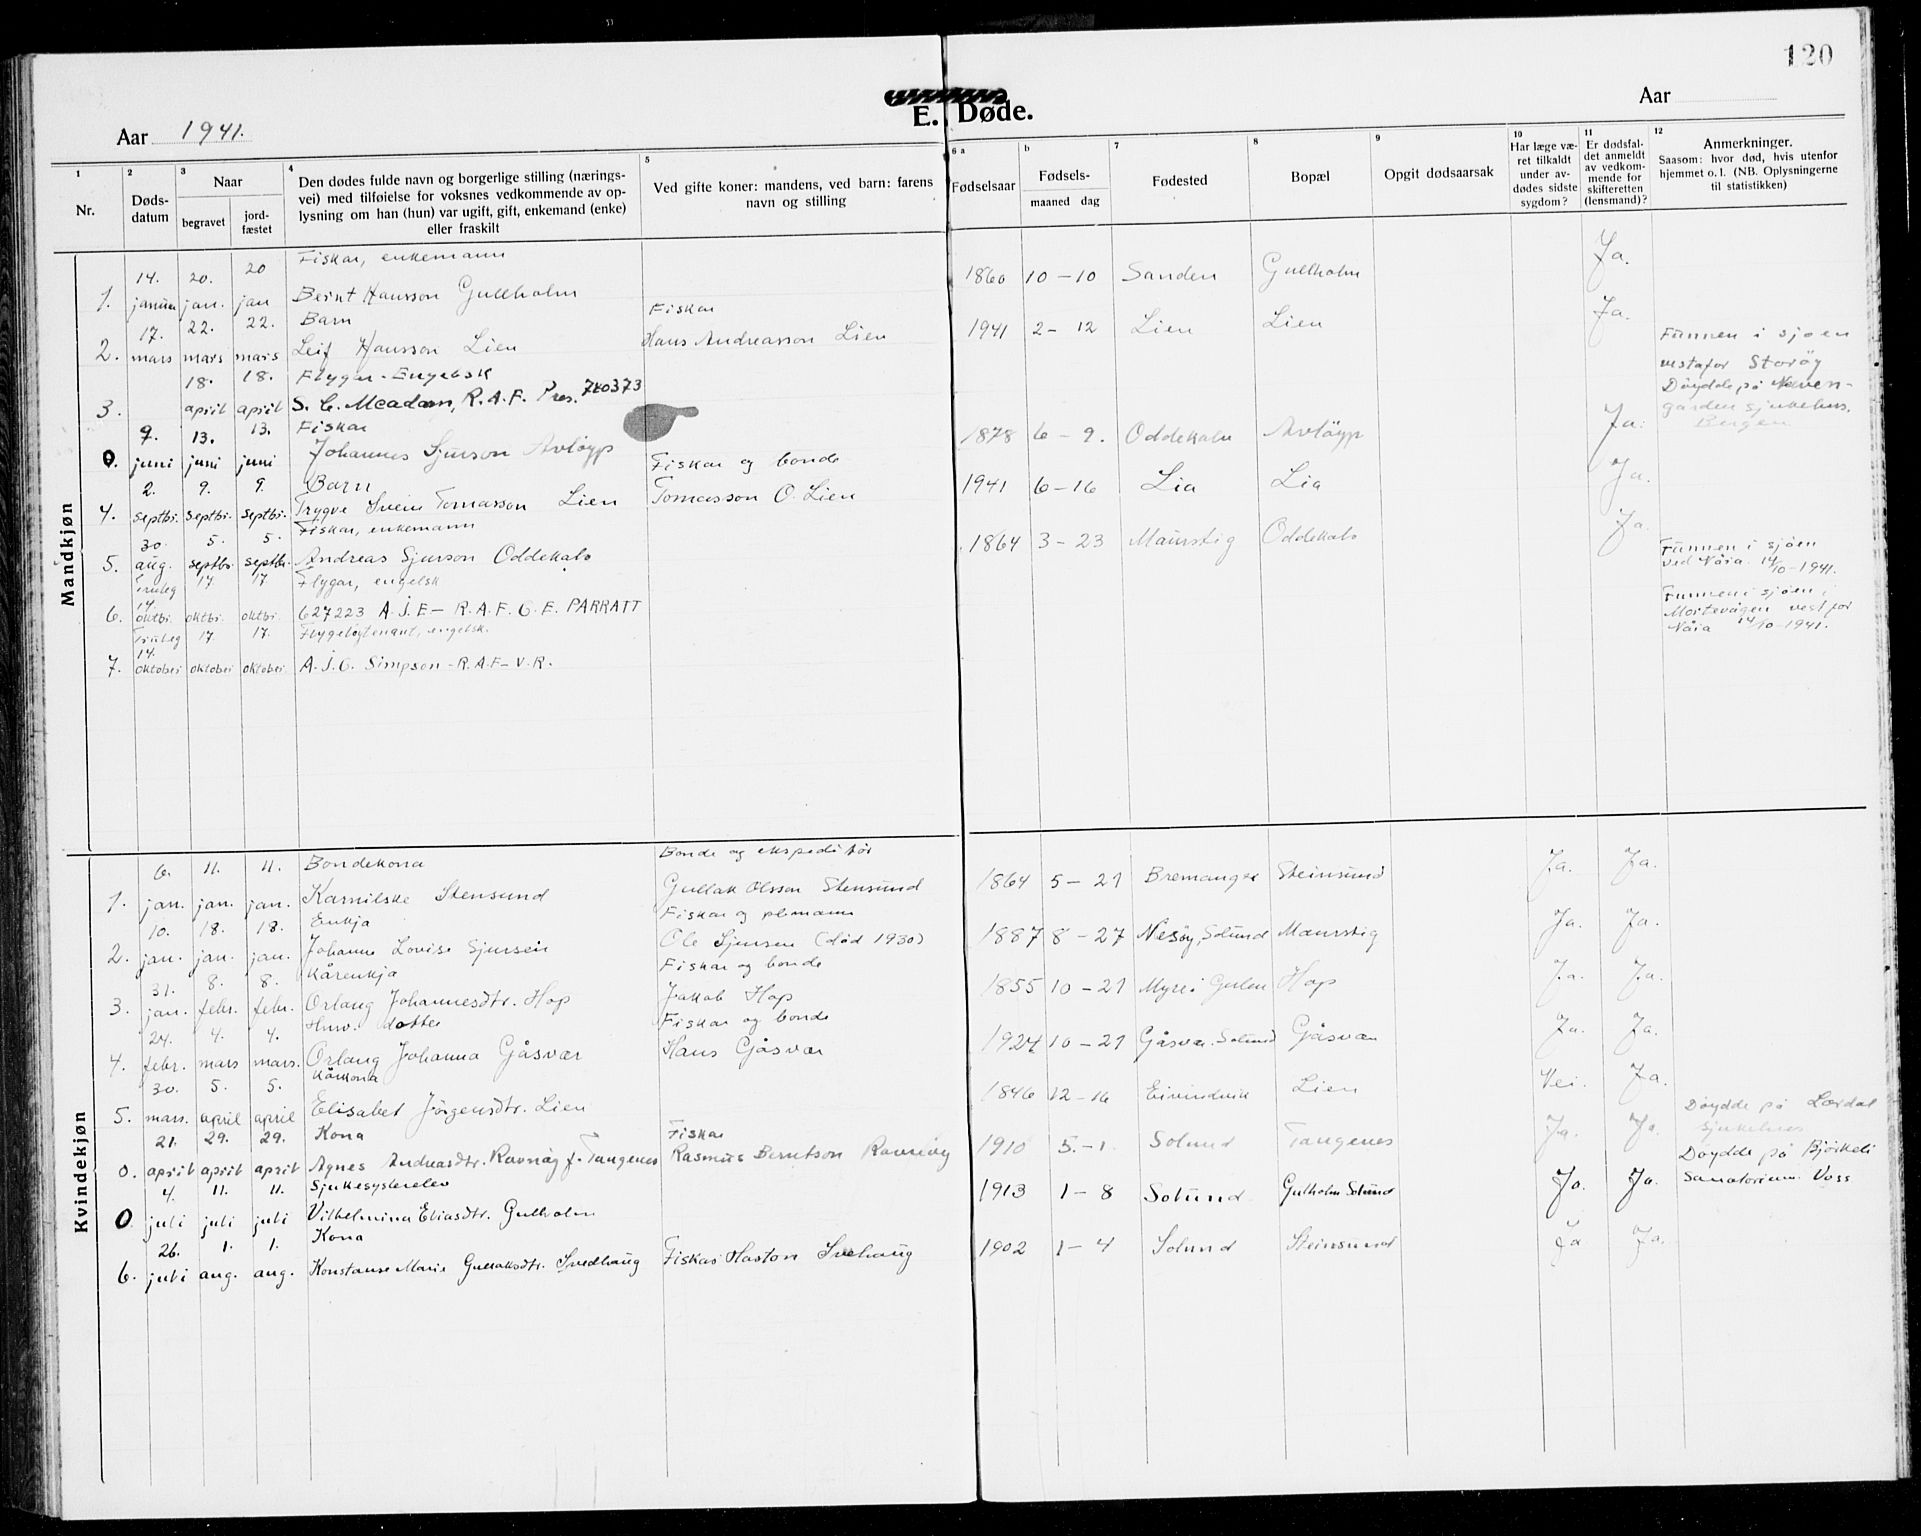 120
E. Døde.
Aar 1941.
Aar
1 2 3 4 5 6 a b 7 8 9 10 11 12
Nr.
Døds-
datum
Naar
begravet
jord-
fæstet
Den dødes fulde navn og borgerlige stilling (nærings-
vei) med tilføielse for voksnes vedkommende av op-
lysning om han (hun) var ugift, gift, enkemand (enke)
eller fraskilt
Ved gifte koner: mandens, ved barn: farens
navn og stilling
Fødselsaar
Fødsels-
maaned dag
Fødested
Bopæl
Opgit dødsaarsak
Har læge væ-
ret tilkaldt
under av-
dødes sidste
sygdom?
Er dødsfal-
det anmeldt
av vedkom-
mende for
skifteretten
(lensmand)?
Anmerkninger.
Saasom: hvor død, hvis utenfor
hjemmet o. l. (NB. Oplysningerne
til statistikken)
Mandkjøn
14. 20. 20 Fiskar, enkemann
1. januar jan. jan Bernt Hansson Gullholm 1860 10-10 Sanden Gullholm Ja.
17. 22. 22. Barn Fiskar
2. mars mars mars Leif Hansson Lien Hans Andreasson Lien 1941 2-12 Lien Lien Ja.
18. 18. Flygar-Engelsk
3. april april S. C. Mcadam, R.A.F. Pres. 740373
Funnen i sjøen
vestafor Storöy
9. 13. 13. Fiskar
0. juni juni juni Johannes Sjurson Avlöyp 1878 6-9. Oddekalv Avlöyp Ja.
Döydde på Neven-
garden sjukehus.
Bergen
2. 9. 9. Barn Fiskar og bonde
4. septbr. septbr. septbr. Trygve Svein Tomasson Lien Tomasson O. Lien 1941 6-16 Lia Lia Ja.
30. 5. 5. Fiskar, enkemann
5. aug. septbr. septbr. Andreas Sjurson Oddekalv 1864 3-23 Maurstig Oddekalv Ja.
Truleg 17 17 Flygar, engelsk
14.
6. oktbr. oktbr. oktbr. 627223 A.J.E- R.A.F. G.E. PARRATT
Funnen i sjöen
ved Nåra. 14/10-1941.
Truleg 17. 17. Flygeløytenant, engelsk.
14.
7. oktober oktober oktober. A.J.G. Simpson-R.A.F-V.R.
Funnen i sjöen i
Mortevågen vest for
Nåra 14/10-1941.
Kvindekjøn
6. 11. 11. Bondekona Bonde og ekspeditör
1. jan. jan. jan. Kamilske Stensund Gullak Olsson Stensund 1864 5-21 Bremanger Steinsund Ja. Ja.
10. 18. 18. Enkja Fiskar og
2. jan. jan. jan. Johanne Lovise Sjursen Ole Sjursen (död 1930) 1887 8-27 Nesöy, Solund Maurstig Ja. Ja.
31. 8. 8. Kårenkja Fiskar og bonde
3. jan. febr. febr. Orlaug Johannesdtr. Hop Jakob Hop 1855 10-21 Myre i Gulen Hop Ja. Ja.
24. 4. 4. Husv. dotter Fiskar og bonde
4. febr. mars mars. Orlaug Johanna Gåsvær Hans Gåsvær 1924 10-21 Gåsvær. Solund Gåsvær Ja. Ja.
30. 5. 5. Kårkona
5. mars. april april Elisabet Jörgensdtr. Lien 1846 12-16 Eivindvik Lien Nei. Ja.
21. 29. 29. Kona Fiskar
0. april april april Agnes Andreasdtr. Ravnöy f. Tangenes Rasmus Berntson Ravnöy 1910 5.-1. Solund Tangenes Ja. Ja.
Döydde på Lærdal
sjukehus
4. 11. 11. Sjukesysterelev
0. juli juli juli Vilhelmina Eliasdtr. Gulholm 1913 1-8 Solund Gulholm Solund Ja. Ja.
Döydde på Björkeli
Sanatorium. Voss
26. 1. 1. Kona
6. juli aug. aug. Konstanse Marie Gullaksdtr. Svedhaug Fiskar Haston Svehaug 1902 1-4 Solund Steinsund Ja Ja.